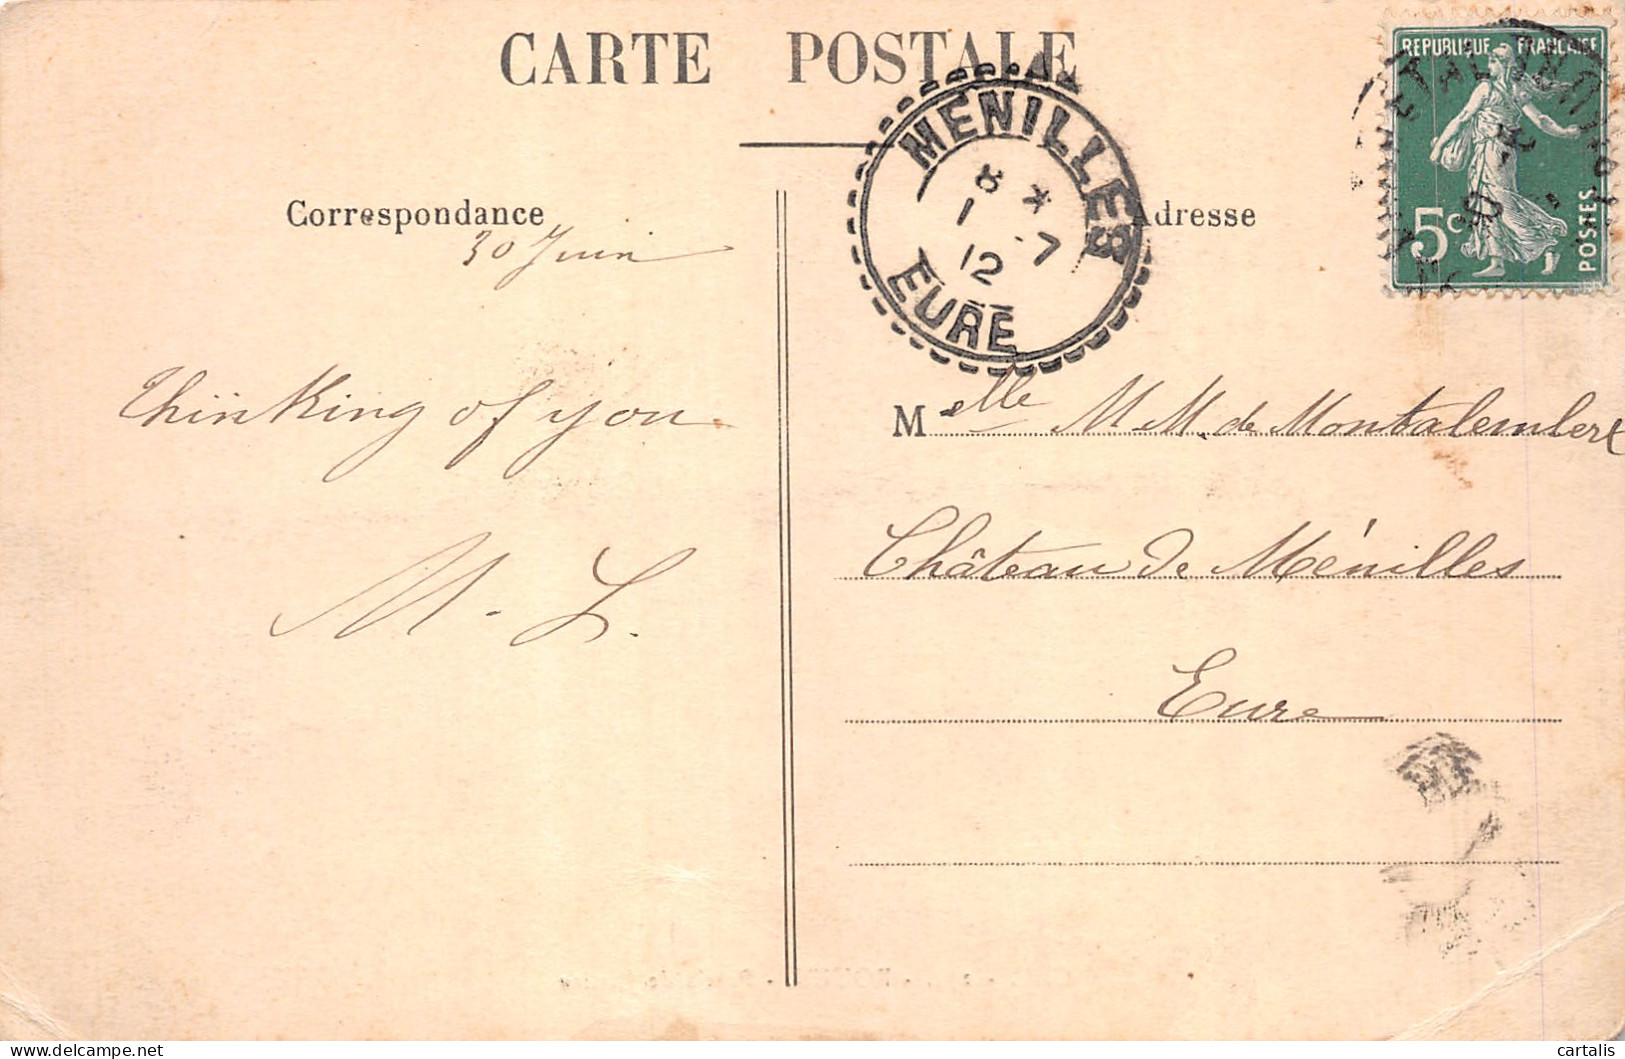 CARTE POSTALE
REPUBLIQUE FRANÇAISE
5c
POSTES
MENILLES
8 *
1 7
12
EURE
Correspondance
Adresse
30 Juin
Thinking of you
M. L.
Melle M. M. de Montalembert
Château de Ménilles
Eure
cartalis